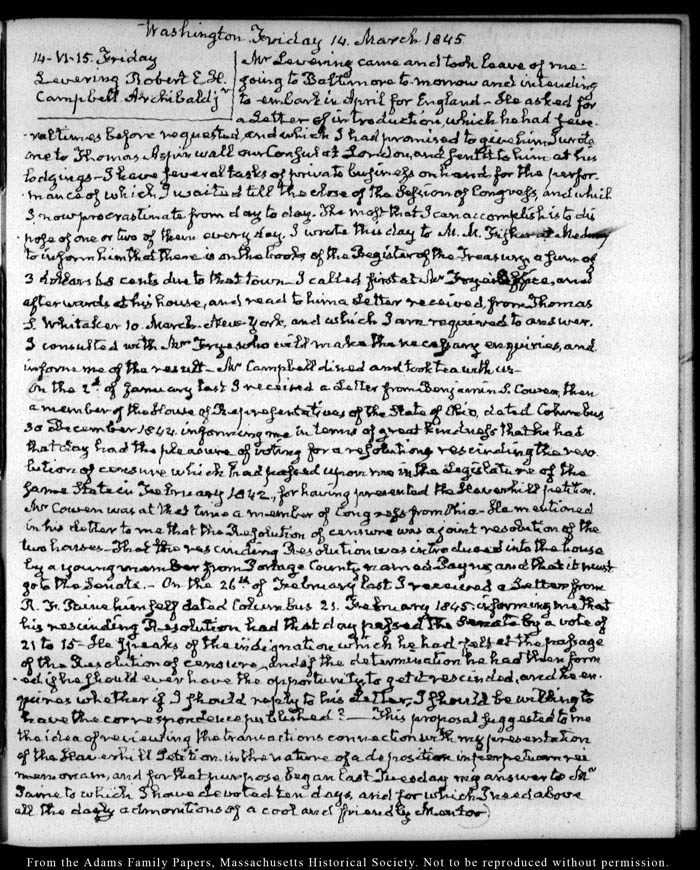 Washington Friday 14. March 1845
14-VI-15. Friday
Levering Robert E. H.
Campbell Archibald jr
Mr Levering came and took leave of me:
going to Baltimore to-morrow and intending
to embark in April for England - He asked for
a Letter of introduction, which he had seve-
ral times before requested, and which I had promised to give him I wrote
one to Thomas Aspinwall our Consul at London, and sent it to him at his
lodgings - I have several tasks of private business on hand for the perfor-
mance of which I waited till the close of the Session of Congress, and which
I now procrastinate from day to day. The most that I can accomplish is to dis
pose of one or two of them every day. I wrote this day to M. M. Fisher at Medway
to inform him that there is on the books of the Register of the Treasury a sum of
3 dollars cents due to that town - I called first at Mr Frye's Office, and
afterwards at his house, and read to him a Letter received from Thomas
L Whitaker 10. March. New-York, and which I am required to answer.
I consulted with Mr Frye who will make the necessary enquiries, and
inform me of the result - Mr Campbell dined and took tea with us -
On the 2d of January last I received a Letter from Benjamin S. Cowen, then
a member of the House of Representatives of the State of Ohio, dated Columbus
30 December 1844. informing me in terms of great kindness that he had
that day had the pleasure of voting for a resolution, rescinding the reso
lution of censure which had passed upon me in the Legislature of the
same State in February 1842, for having presented the Haverhill petition.
Mr Cowen was at that time a member of Congress from Ohio - He mentioned
in his Letter to me that the Resolution of censure was a joint resolution of the
two houses - That the rescinding Resolution was introduced into the house
by a young member from Portage County named Payne and that it must
go to the Senate. - On the 26th of February last I received a Letter from
R. F. Paine himself dated Columbus 21. February 1845. informing me that
his rescinding Resolution had that day passed the Senate by a vote of
21 to 15 - He speaks of the indignation which he had felt at the passage
of the Resolution of censure, and of the determination he had then form
ed if he should ever have the opportunity to get it rescinded, and he en-
quires whether if I should reply to his Letter, I should be willing to
have the correspondence published? - This proposal suggested to me
the idea of reviewing the transactions connection with my presentation
of the Haverhill Petition. in the nature of a deposition in perpetuam rei
memoriam, and for that purpose began last Tuesday my answer to Mr
Paine to which I have devoted ten days, and for which I need above
all the admonitions of a cool and friendly Mentor
From the Adams Family Papers, Massachusetts Historical Society. Not to be reproduced without permission.